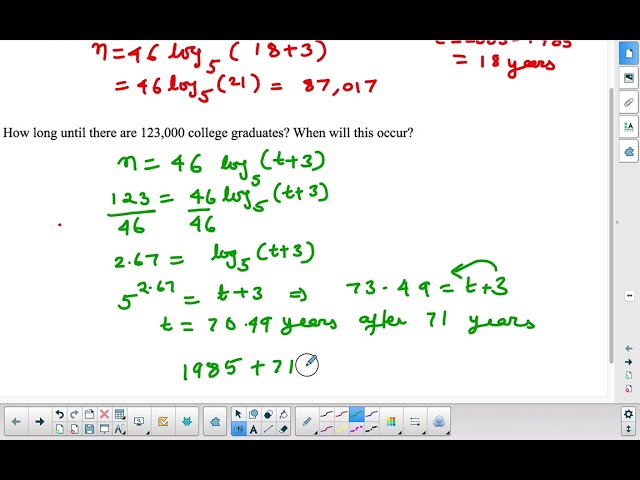 n = 46 log₅ (18+3)
= 46 log₅ (21) = 87,017
= 18 years
How long until there are 123,000 college graduates? When will this occur?
n = 46 log₅ (t+3)
123/46 = 46/46 log₅ (t+3)
2.67 = log₅ (t+3)
5^2.67 = t+3 ⇒ 73.49 = t+3
t = 70.49 years after 71 years
1985 + 71